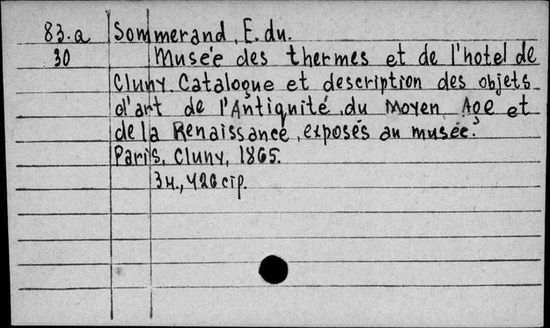 83.a Sommerand, E. du.
30 Musée des thermes et de l'hotel de
Cluny. Catalogue et description des objets
d'art de l'Antiquité, du Moyen Age et
de la Renaissance, exposés au musée.
Paris, Cluny, 1865.
3н., 426 стр.